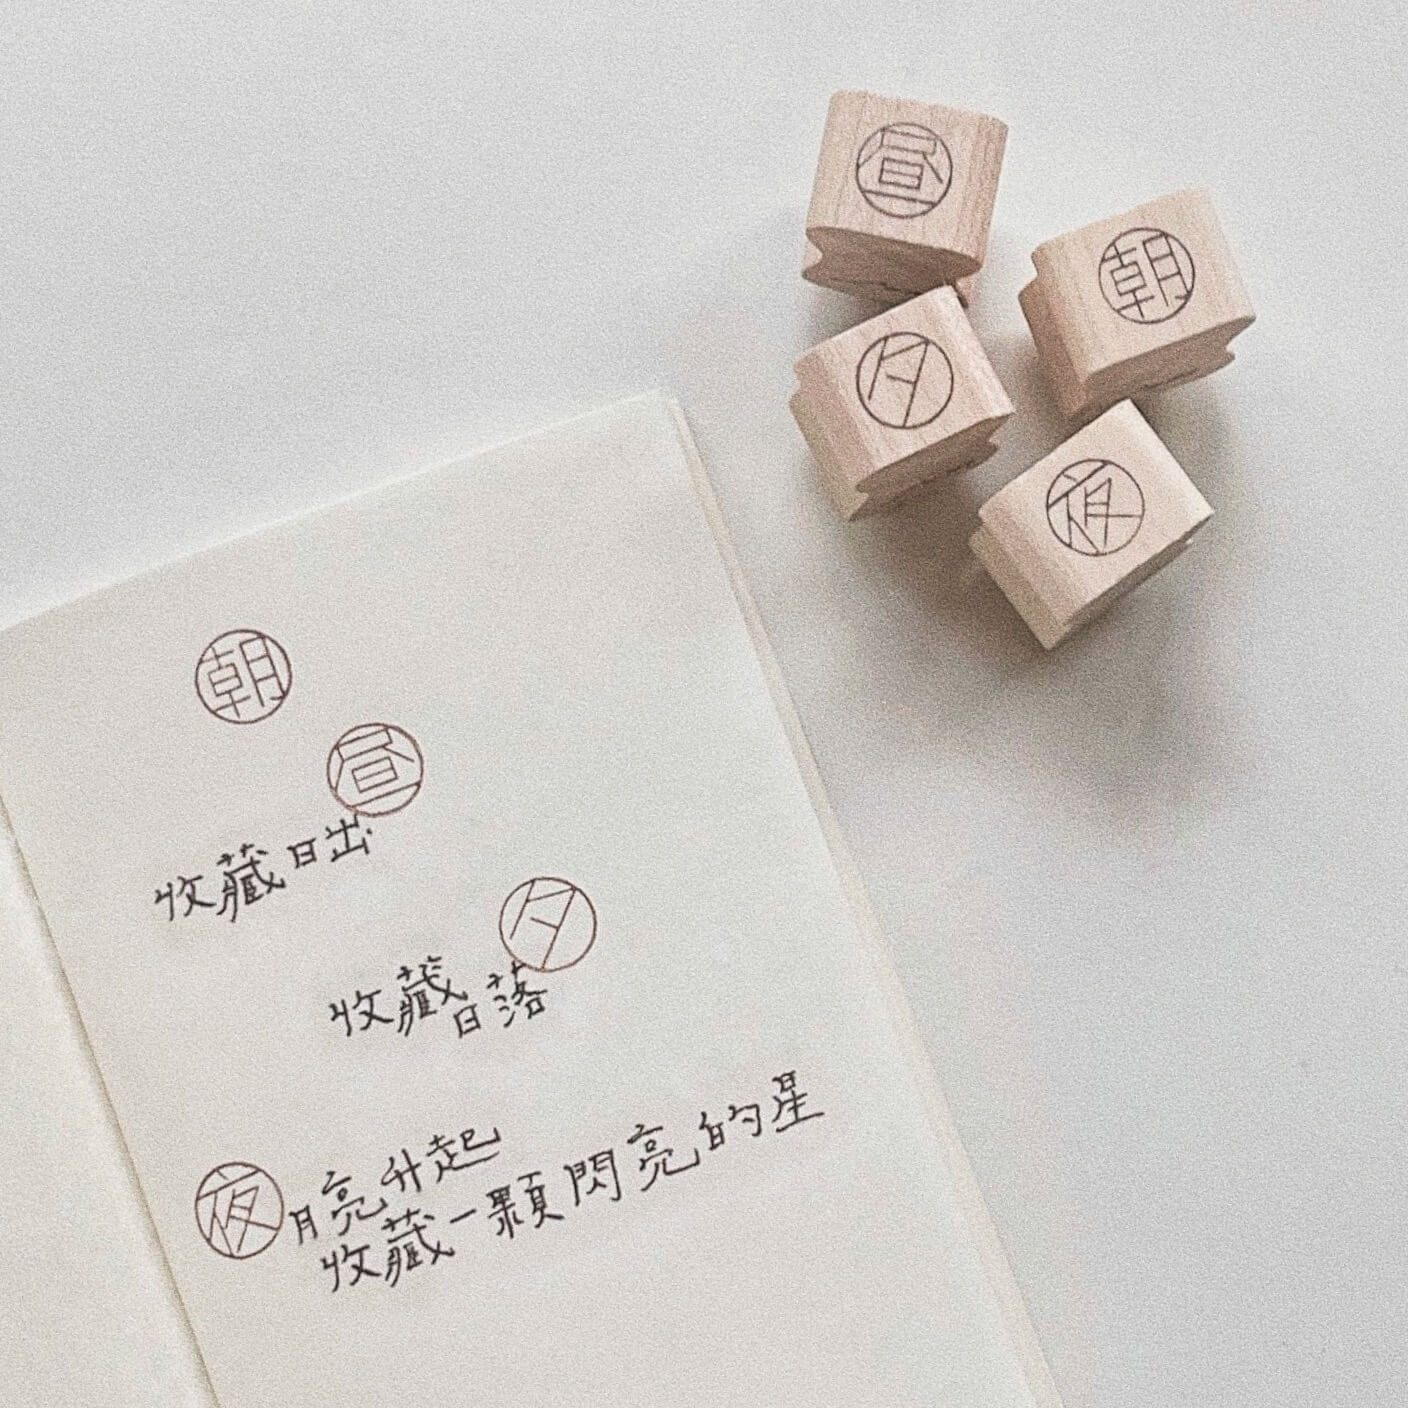 昼
朝
夕
夜
朝
昼
收藏日出
夕
收藏日落
夜
月亮升起
收藏一顆閃亮的星